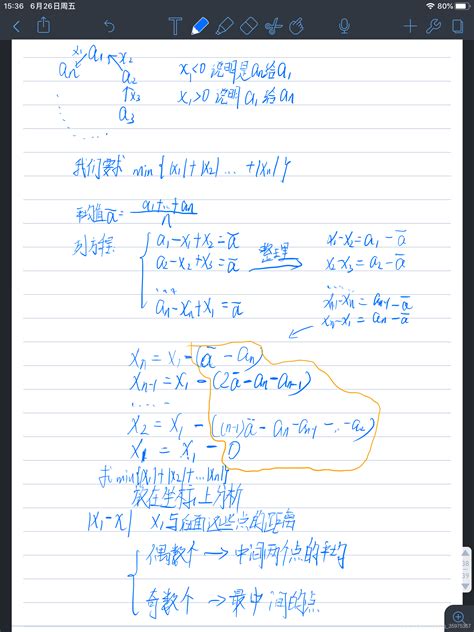 15:36 6月26日周五
80%
a₁
x₁
x₂
aₙ
a₂
x₃
a₃
x₁<0 说明是aₙ给a₁
x₁>0 说明a₁给aₙ
我们要求 min{|x₁|+|x₂| ... +|xₙ|}
平均值 a̅ = (a₁+...+aₙ)/n
列方程:
a₁-x₁+x₂=a̅
a₂-x₂+x₃=a̅
......
aₙ-xₙ+x₁=a̅
整理
x₁-x₂=a₁-a̅
x₂-x₃=a₂-a̅
......
xₙ₋₁-xₙ=aₙ₋₁-a̅
xₙ-x₁=aₙ-a̅
xₙ = x₁-(a̅-aₙ)
xₙ₋₁ = x₁-(2a̅-aₙ-aₙ₋₁)
......
x₂ = x₁-((n-1)a̅-aₙ-aₙ₋₁-...-a₂)
x₁ = x₁-0
求min{|x₁|+|x₂|+...|xₙ|}
放在坐标上分析
|x₁-x| x₁与后面这些点的距离
偶数个 → 中间两个点的平均
奇数个 → 最中间的点
38
39